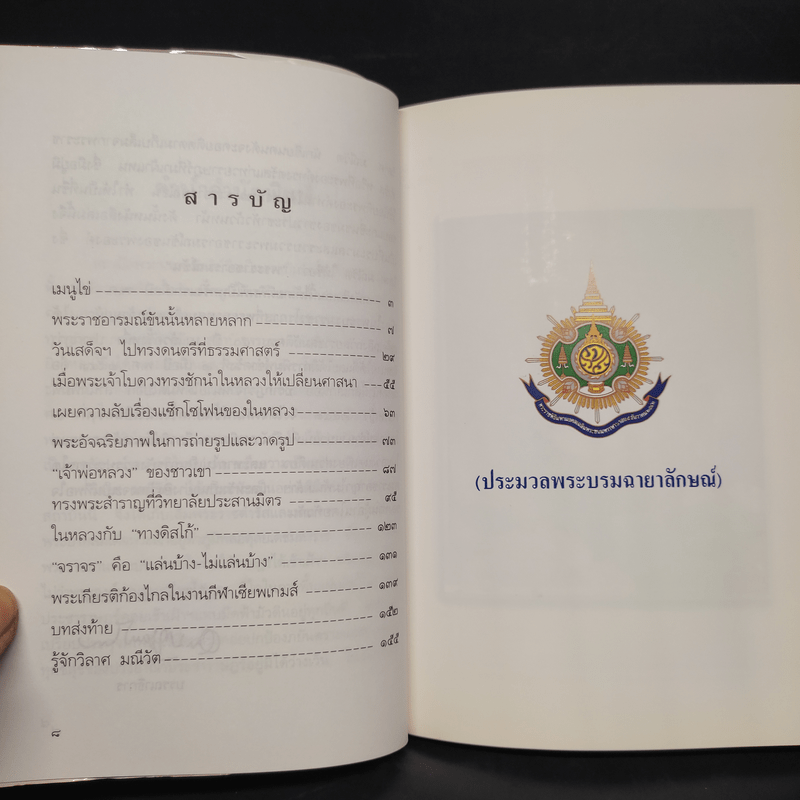 สารบัญ
เมนูไข่ ๓
พระราชอารมณ์ขันนั้นหลายหลาก ๗
วันเสด็จฯ ไปทรงดนตรีที่ธรรมศาสตร์ ๒๙
เมื่อพระเจ้าโบดวงทรงชักนำในหลวงให้เปลี่ยนศาสนา ๕๕
เผยความลับเรื่องแซ็กโซโฟนของในหลวง ๖๓
พระอัจฉริยภาพในการถ่ายรูปและวาดรูป ๗๓
"เจ้าพ่อหลวง" ของชาวเขา ๘๗
ทรงพระสำราญที่วิทยาลัยประสานมิตร ๙๕
ในหลวงกับ "ทางดิสโก้" ๑๒๓
"จราจร" คือ "แล่นบ้าง-ไม่แล่นบ้าง" ๑๓๑
พระเกียรติก้องไกลในงานกีฬาเซียพเกมส์ ๑๓๙
บทส่งท้าย ๑๕๒
รู้จักวิลาศ มณีวัต ๑๕๕
๘
(ประมวลพระบรมฉายาลักษณ์)